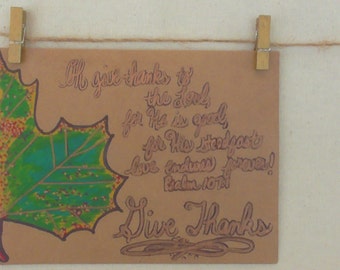 Oh give thanks to
the Lord,
for He is good,
for His steadfast
love endures forever!
Psalm 107:1
Give Thanks